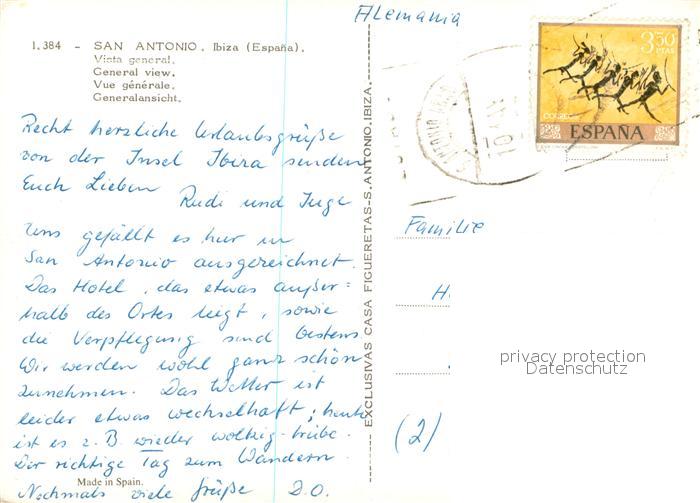 Alemania
1.384 - SAN ANTONIO. Ibiza (España).
Vista general.
General view.
Vue générale.
Generalansicht.
3'50
PTAS
CORREOS
ESPAÑA
Recht herzliche Urlaubsgrüße
von der Insel Ibiza senden
Euch Lieben
Rudi und Inge
Uns gefällt es hier in
San Antonio ausgezeichnet.
Das Hotel, das etwas außer=
halb des Ortes liegt, sowie
die Verpflegung sind bestens.
Wir werden wohl ganz schön
zunehmen. Das Wetter ist
leider etwas wechselhaft; heute
ist es z.B wieder wolkig-trübe.
Der richtige Tag zum Wandern.
Nochmals viele Grüße D.O.
Made in Spain.
EXCLUSIVAS CASA FIGUERETAS-S. ANTONIO. IBIZA.
Familie
H
privacy protection
Datenschutz
(2)